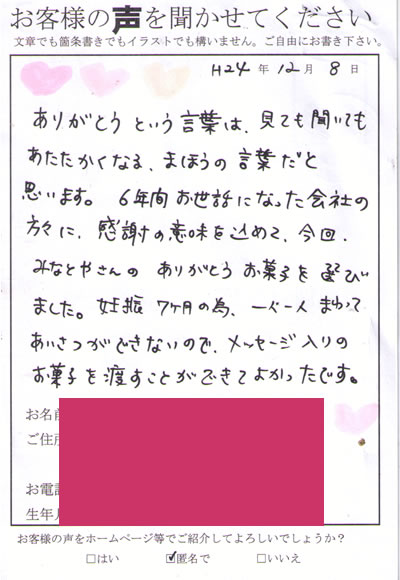 お客様の声を聞かせてください
文章でも箇条書きでもイラストでも構いません。ご自由にお書き下さい。
H24年12月8日
ありがとうという言葉は、見ても聞いても
あたたかくなる、まほうの言葉だと
思います。6年間お世話になった会社の
方々に、感謝の意味を込めて、今回、
みなとやさんのありがとうお菓子を選び
ました。妊娠7ヶ月の為、一人一人まわって
あいさつができないので、メッセージ入りの
お菓子を渡すことができてよかったです。
お名前
ご住所
お電話
生年月
お客様の声をホームページ等でご紹介してよろしいでしょうか?
□はい ☑匿名で □いいえ